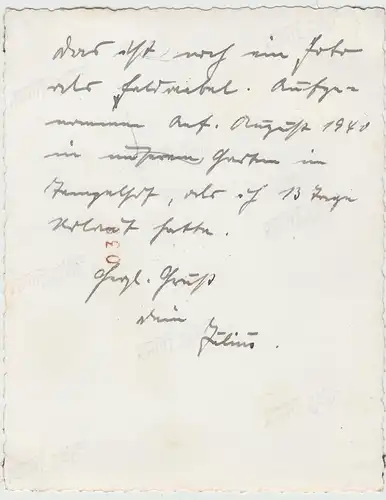 Das ist noch ein Foto
als Feldwebel. Aufge-
nommen Anf. August 1940
in unserem Garten in
Tempelhof, als ich 13 Tage
Urlaub hatte.
Herzl. Gruß
Dein
Julius.